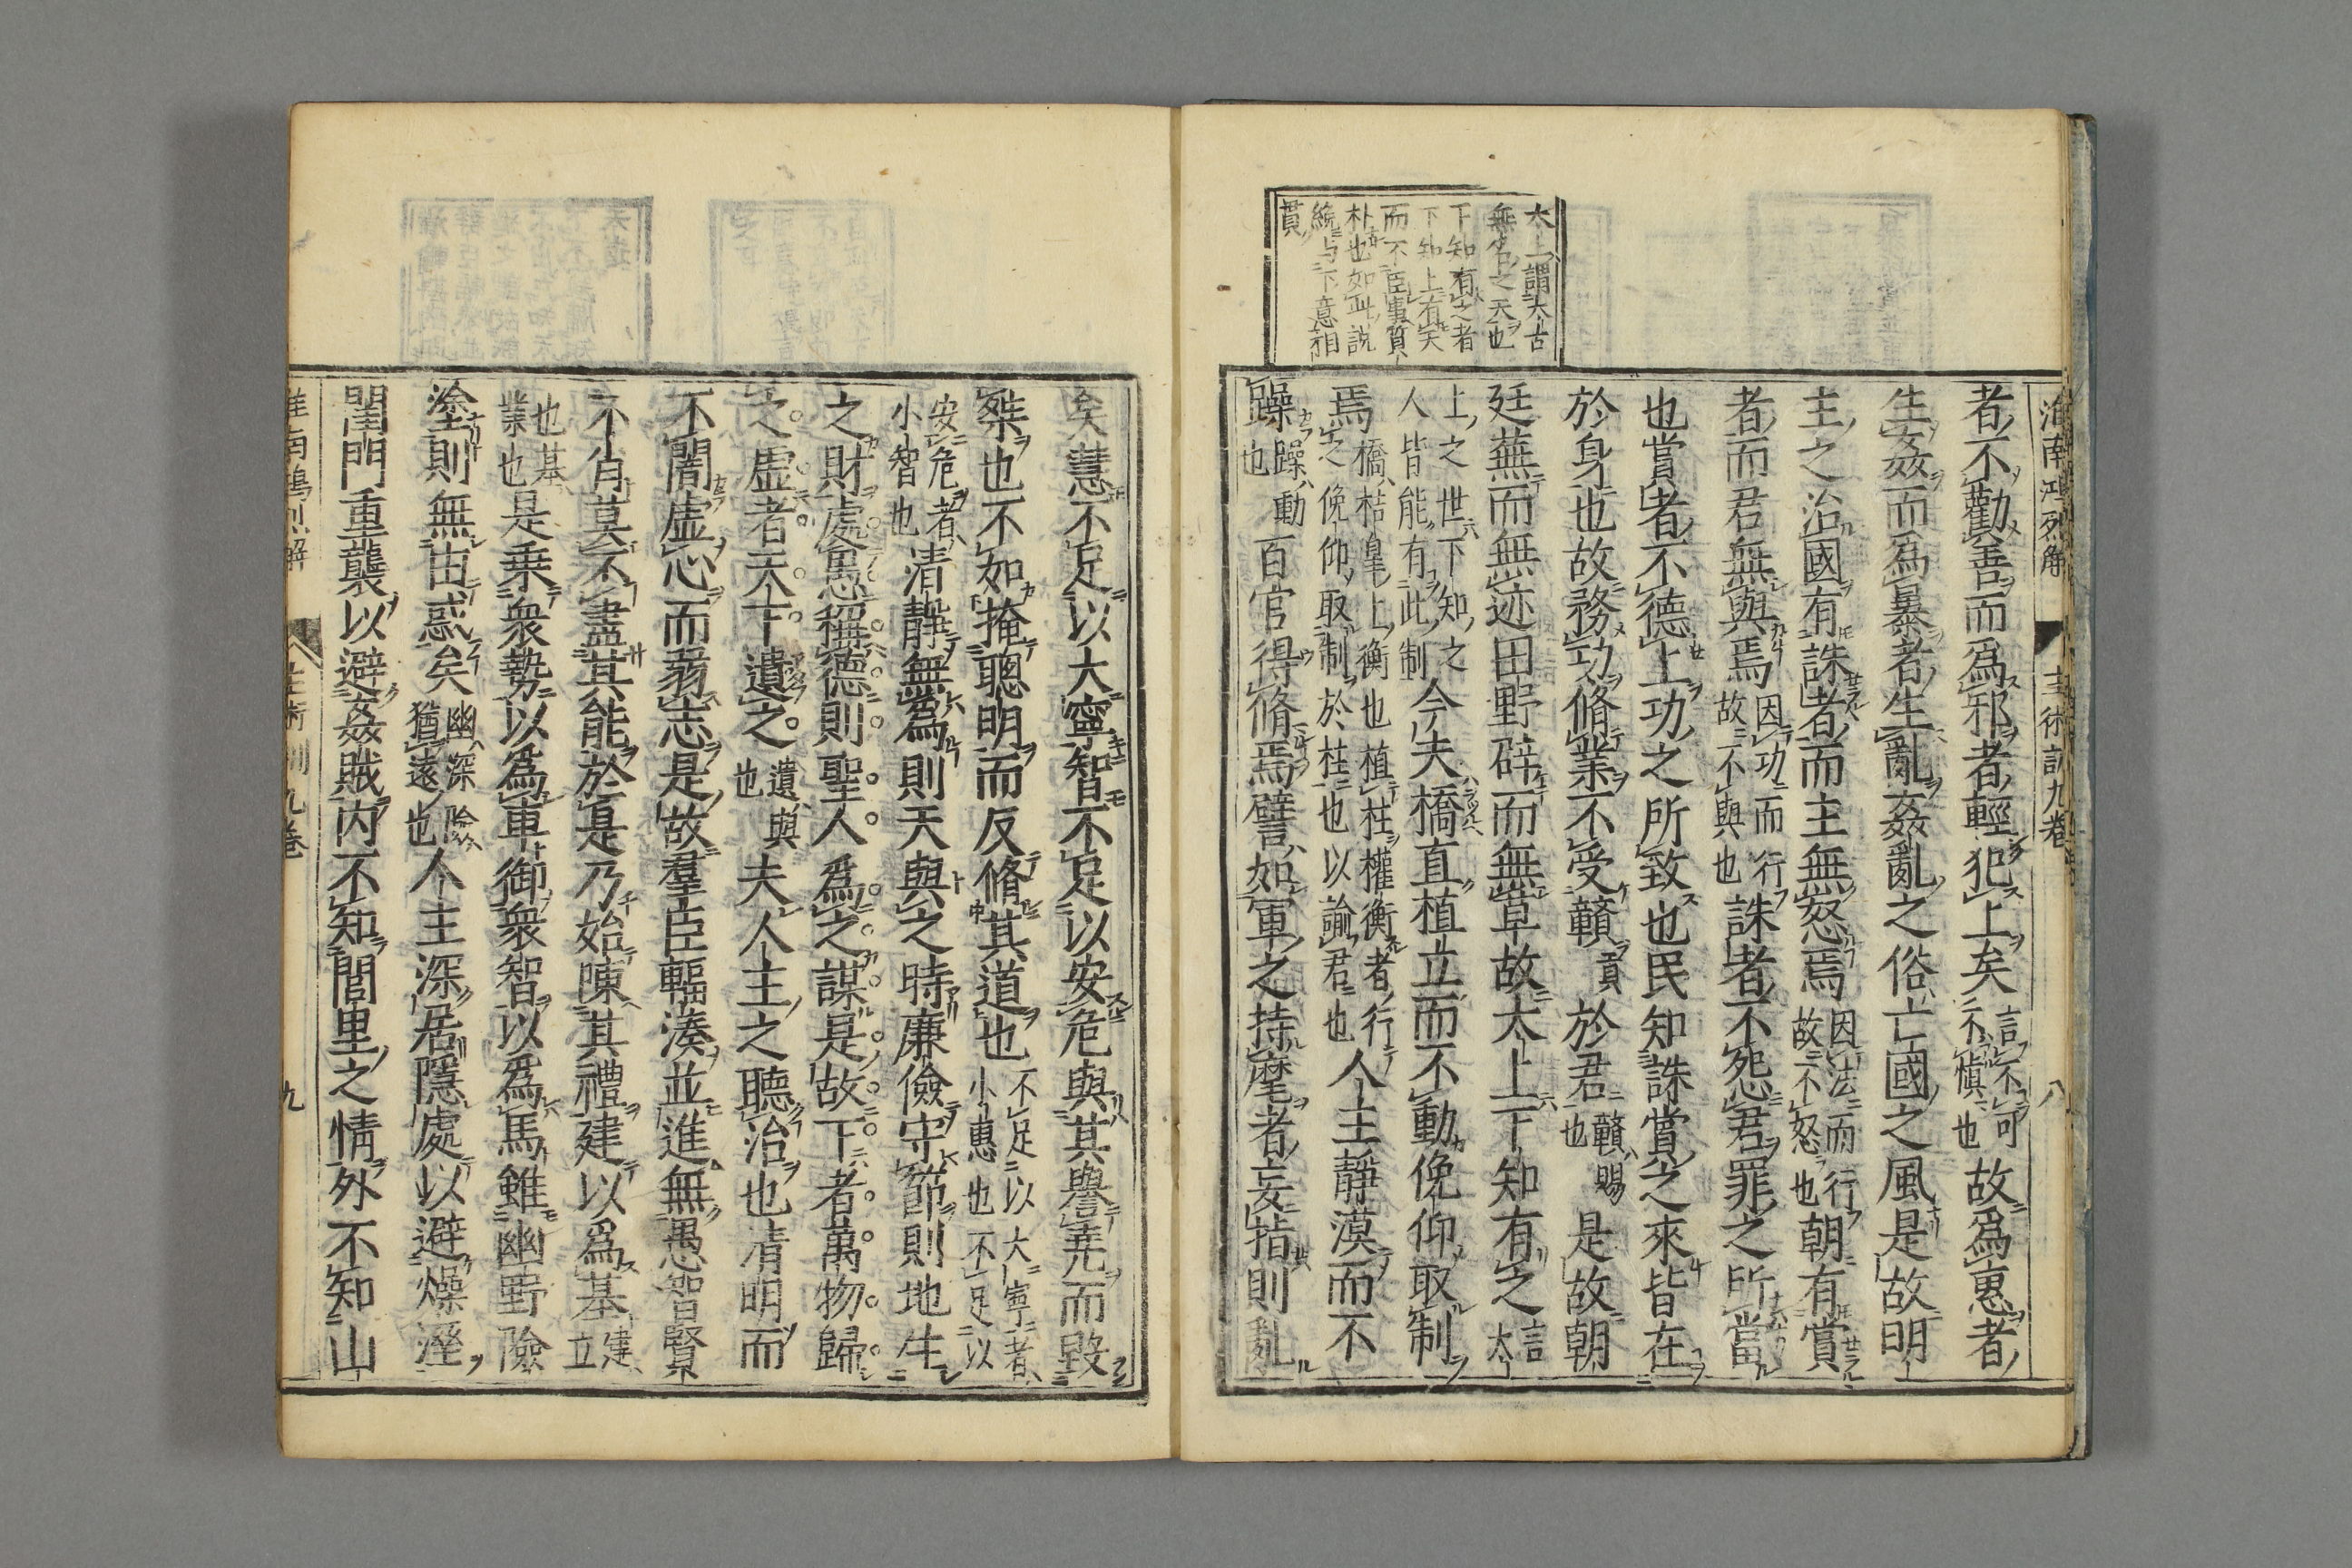 淮南鴻烈解 主術訓九卷 八
者不勸善而爲邪者輕犯上矣言不可不愼也故爲惠者
生姦而爲暴者生亂姦亂之俗亡國之風是故明
主之治國有誅者而主無怒焉因法而行故不怒也朝有賞
者而君無與焉因功而行故不與也誅者不怨君罪之所當
也賞者不德上功之所致也民知誅賞之來皆在
於身也故務功脩業不受贛貢於君贛賜也是故朝
廷蕪而無迹田野辟而無草故太上下知有之言太
上之世下知之人皆能有此制今夫橋直植立而不動俛仰取制
焉橋桔皐上衡也植柱權衡者行之俛仰取制於柱也以諭君也人主靜漠而不
躁躁動也百官得脩焉譬如軍之持麾者妄指則亂
太上謂太古
無名之天也
下知有之者
下知上有矣
而不臣事質
朴也如此說
統与下意相
貫
矣慧不足以大寧智不足以安危與其譽堯而毀
桀也不如掩聰明而反脩其道也不足以大寧者小惠也不足以
安危者小智也清靜無爲則天與之時廉儉守節則地生
之財處愚稱德則聖人爲之謀是故下者萬物歸
之虛者天下遺之遺與也夫人主之聽治也清明而
不闇虛心而弱志是故羣臣輻湊並進無愚智賢
不肖莫不盡其能於是乃始陳其禮建以爲基建立
也基業也是乗衆勢以爲車御衆智以爲馬雖幽野險
塗則無由惑矣幽深險猶遠也人主深居隱處以避燥溼
閨門重襲以避姦賊内不知閭里之情外不知山
淮南鴻烈解 主術訓九卷 九